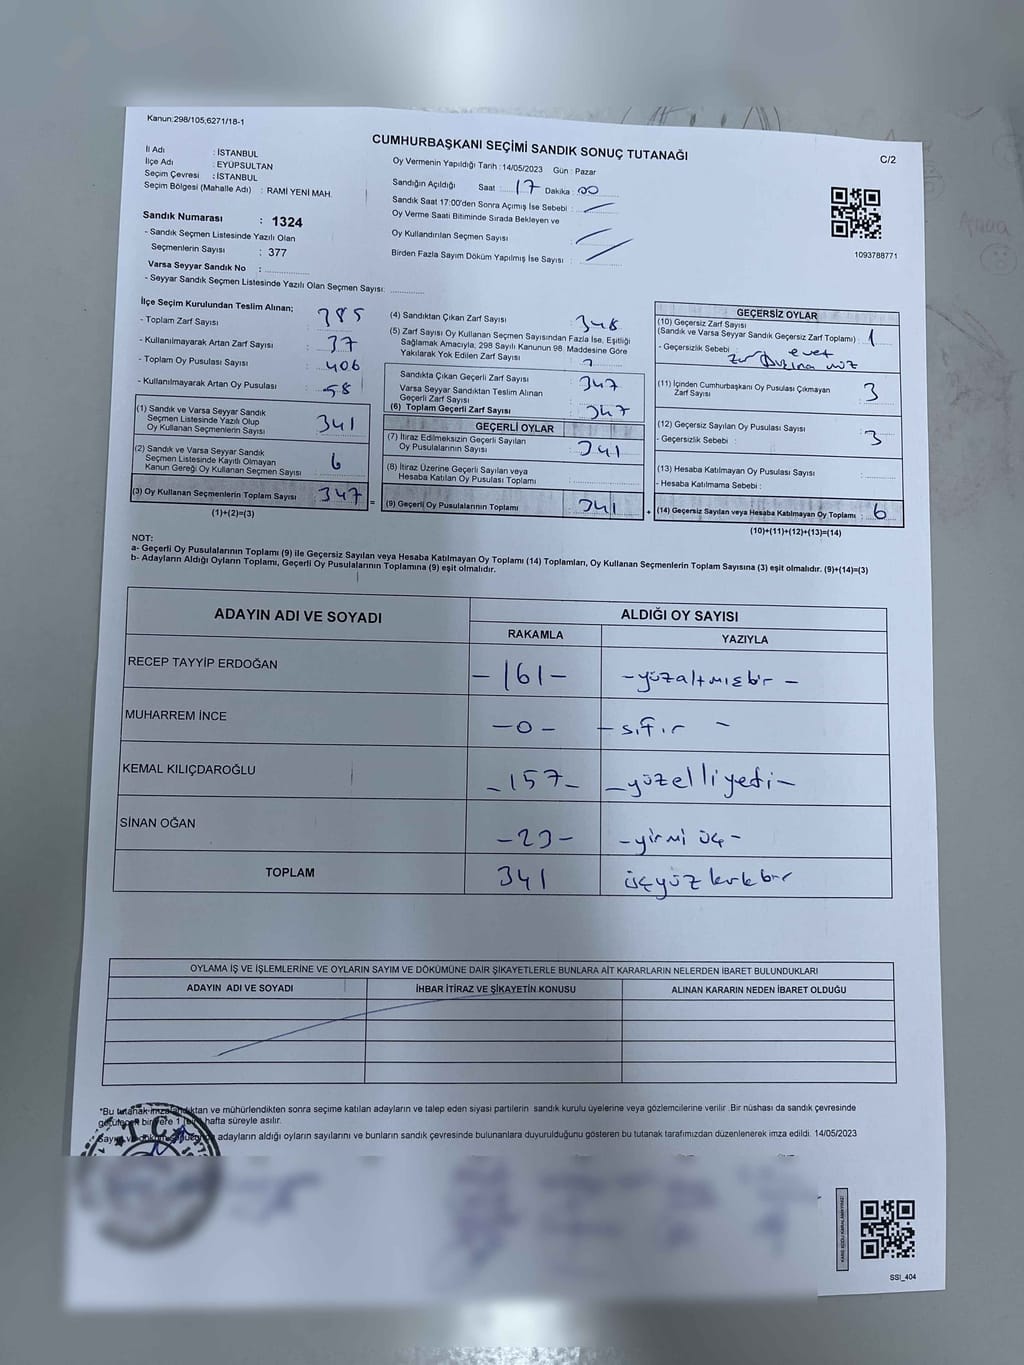 Kanun:298/105,6271/18-1
CUMHURBAŞKANI SEÇİMİ SANDIK SONUÇ TUTANAĞI
C/2
İl Adı : İSTANBUL
İlçe Adı : EYÜPSULTAN
Seçim Çevresi : İSTANBUL
Seçim Bölgesi (Mahalle Adı) : RAMİ YENİ MAH.
Sandık Numarası : 1324
- Sandık Seçmen Listesinde Yazılı Olan
Seçmenlerin Sayısı : 377
Varsa Seyyar Sandık No :
- Seyyar Sandık Seçmen Listesinde Yazılı Olan Seçmen Sayısı:
Oy Vermenin Yapıldığı Tarih :14/05/2023 Gün : Pazar
Sandığın Açıldığı Saat : 17 Dakika : 00
Sandık Saat 17:00'den Sonra Açımış İse Sebebi :
Oy Verme Saati Bitiminde Sırada Bekleyen ve
Oy Kullandırılan Seçmen Sayısı :
Birden Fazla Sayım Döküm Yapılmış İse Sayısı :
1093788771
Anna
İlçe Seçim Kurulundan Teslim Alınan;
- Toplam Zarf Sayısı : 385
- Kullanılmayarak Artan Zarf Sayısı : 37
- Toplam Oy Pusulası Sayısı : 406
- Kullanılmayarak Artan Oy Pusulası : 58
(1) Sandık ve Varsa Seyyar Sandık
Seçmen Listesinde Yazılı Olup
Oy Kullanan Seçmenlerin Sayısı : 341
(2) Sandık ve Varsa Seyyar Sandık
Seçmen Listesinde Kayıtlı Olmayan
Kanun Gereği Oy Kullanan Seçmen Sayısı : 6
(3) Oy Kullanan Seçmenlerin Toplam Sayısı : 347 =
(1)+(2)=(3)
(4) Sandıktan Çıkan Zarf Sayısı : 348
(5) Zarf Sayısı Oy Kullanan Seçmen Sayısından Fazla İse, Eşitliği
Sağlamak Amacıyla, 298 Sayılı Kanunun 98. Maddesine Göre
Yakılarak Yok Edilen Zarf Sayısı :
Sandıkta Çıkan Geçerli Zarf Sayısı : 347
Varsa Seyyar Sandıktan Teslim Alınan
Geçerli Zarf Sayısı :
(6) Toplam Geçerli Zarf Sayısı : 347
GEÇERLİ OYLAR
(7) İtiraz Edilmeksizin Geçerli Sayılan
Oy Pusulalarının Sayısı : 341
(8) İtiraz Üzerine Geçerli Sayılan veya
Hesaba Katılan Oy Pusulası Toplamı :
(9) Geçerli Oy Pusulalarının Toplamı : 341 +
GEÇERSİZ OYLAR
(10) Geçersiz Zarf Sayısı
(Sandık ve Varsa Seyyar Sandık Geçersiz Zarf Toplamı) : 1
- Geçersizlik Sebebi : evet
(11) İçinden Cumhurbaşkanı Oy Pusulası Çıkmayan
Zarf Sayısı : 3
(12) Geçersiz Sayılan Oy Pusulası Sayısı : 3
- Geçersizlik Sebebi :
(13) Hesaba Katılmayan Oy Pusulası Sayısı :
- Hesaba Katılmama Sebebi :
(14) Geçersiz Sayılan veya Hesaba Katılmayan Oy Toplamı : 6
(10)+(11)+(12)+(13)=(14)
NOT:
a- Geçerli Oy Pusulalarının Toplamı (9) ile Geçersiz Sayılan veya Hesaba Katılmayan Oy Toplamı (14) Toplamları, Oy Kullanan Seçmenlerin Toplam Sayısına (3) eşit olmalıdır. (9)+(14)=(3)
b- Adayların Aldığı Oyların Toplamı, Geçerli Oy Pusulalarının Toplamına (9) eşit olmalıdır.
ADAYIN ADI VE SOYADI ALDIĞI OY SAYISI
RAKAMLA YAZIYLA
RECEP TAYYİP ERDOĞAN -161- -yüzaltmışbir-
MUHARREM İNCE -0- -sıfır-
KEMAL KILIÇDAROĞLU -157- -yüzelliyedi-
SİNAN OĞAN -23- -yirmi üç-
TOPLAM 341 üçyüz kırkbir
OYLAMA İŞ VE İŞLEMLERİNE VE OYLARIN SAYIM VE DÖKÜMÜNE DAİR ŞİKAYETLERLE BUNLARA AİT KARARLARIN NELERDEN İBARET BULUNDUKLARI
ADAYIN ADI VE SOYADI İHBAR İTİRAZ VE ŞİKAYETİN KONUSU ALINAN KARARIN NEDEN İBARET OLDUĞU
*Bu tutanak imzalandıktan ve mühürlendikten sonra seçime katılan adayların ve talep eden siyasi partilerin sandık kurulu üyelerine veya gözlemcilerine verilir. Bir nüshası da sandık çevresinde
bir yere 1 hafta süreyle asılır.
adayların aldığı oyların sayılarını ve bunların sandık çevresinde bulunanlara duyurulduğunu gösteren bu tutanak tarafımızdan düzenlenerek imza edildi. 14/05/2023
T.C.
SSI_404